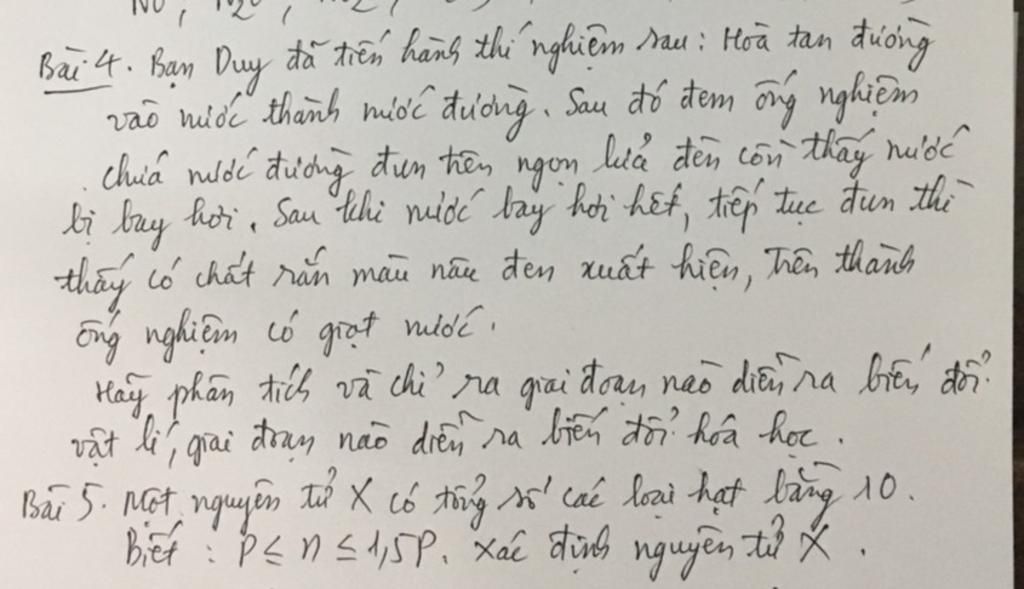 NO, N2O, NO2,
Bài 4. Bạn Duy đã tiến hành thí nghiệm sau: Hoà tan đường
vào nước thành nước đường. Sau đó đem ống nghiệm
chứa nước đường đun trên ngọn lửa đèn cồn thấy nước
bị bay hơi. Sau khi nước bay hơi hết, tiếp tục đun thì
thấy có chất rắn màu nâu đen xuất hiện, trên thành
ống nghiệm có giọt nước.
Hãy phân tích và chỉ ra giai đoạn nào diễn ra biến đổi
vật lí, giai đoạn nào diễn ra biến đổi hoá học.
Bài 5. Một nguyên tử X có tổng số các loại hạt bằng 10.
Biết: P ≤ n ≤ 1,5P. Xác định nguyên tử X.